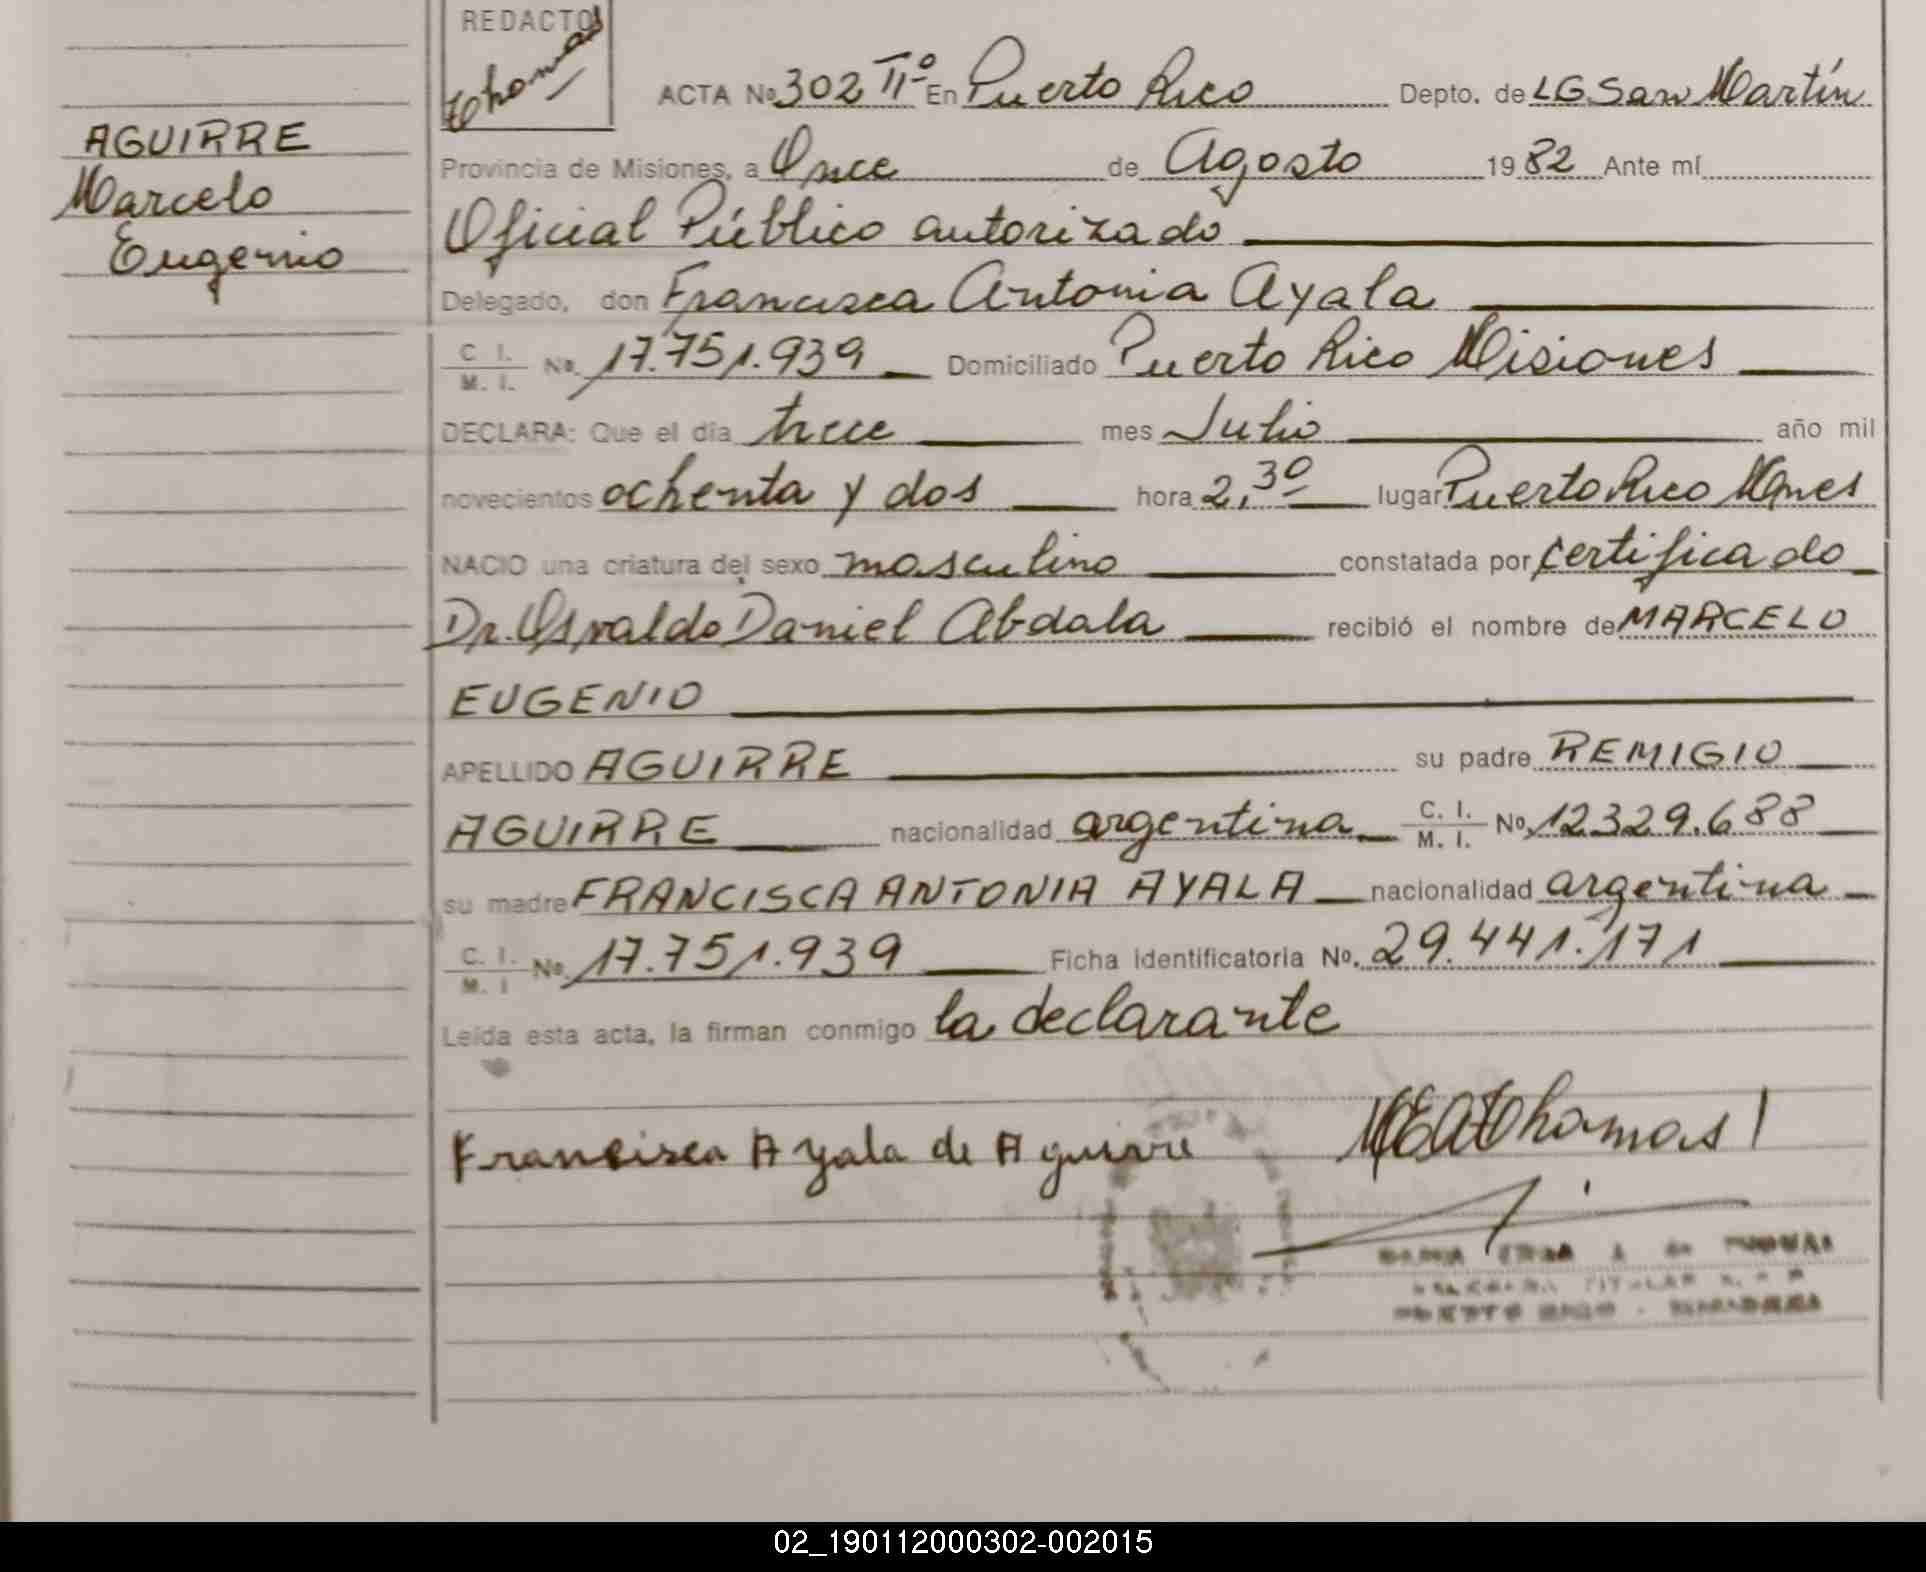 REDACTO
Thomas
ACTA No 302 IIº En Puerto Rico Depto. de LG. San Martín
AGUIRRE
Marcelo
Eugenio
Provincia de Misiones, a Once de Agosto 1982 Ante mí
Oficial Público autorizado
Delegado, don Francisca Antonia Ayala
C. I. / M. I. No. 17.751.939 Domiciliado Puerto Rico Misiones
DECLARA: Que el día trece mes Julio año mil
novecientos ochenta y dos hora 2,30 lugar Puerto Rico Mnes
NACIO una criatura del sexo masculino constatada por certificado
Dr. Osvaldo Daniel Abdala recibió el nombre de MARCELO
EUGENIO
APELLIDO AGUIRRE su padre REMIGIO
AGUIRRE nacionalidad argentina C. I. / M. I. No. 12329.688
su madre FRANCISCA ANTONIA AYALA nacionalidad argentina
C. I. / M. I No. 17.751.939 Ficha Identificatoria No. 29.441.171
Leída esta acta, la firman conmigo la declarante
Francisca Ayala de Aguirre
TITULAR
02_190112000302-002015